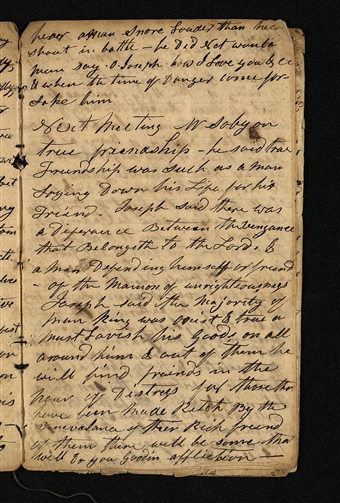 hear a man Snore Louder than he
shout in battle - he Did Not want a
man say O Joseph how I Love you &c
& when the time of Danger come for-
sake him
Next meeting Mr Soby on
true friendship - he said true
Friendship was Such as a man
Laying Down his Life for his
Friend Joseph Said there was
a Deferance Between the vengance
that Belongeth to the Lord, &
a man Defending himself or friend
- of the Mamon of unrighteousness
Joseph said the Majority of
man kind was ... & true a
must Lavish his Goods on all
around him & out of them he
will find friends in the
hour of Distress for those that
have been made Ritch By the
Benevalance of their Rich friend
of them there will be some that
will Do you Good in affliction -